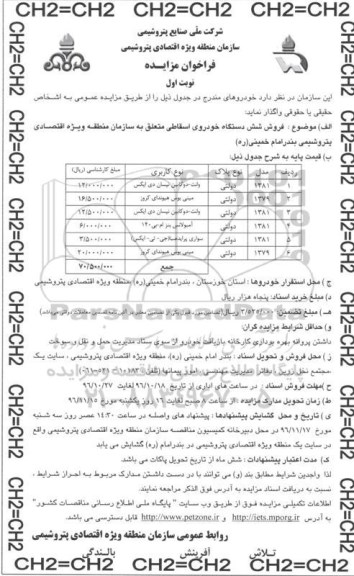 CH2=CH2 CH2=CH2 CH2=CH2 CH2=CH2
شرکت ملّی صنایع پتروشیمی
سازمان منطقه ویژه اقتصادی پتروشیمی
فراخوان مزایـده
نوبت اول
این سازمان در نظر دارد خودروهای مندرج در جدول ذیل را از طریق مزایده عمومی به اشخاص
حقیقی یا حقوقی واگذار نماید:
الف) موضوع : فروش شش دستگاه خودروی اسقاطی متعلق به سازمان منطقـه ویـژه اقتصـادی
پتروشیمی بندرامام خمینی(ره)
ب) قیمت پایه به شرح جدول ذیل:
ردیف مدل نوع پلاک نوع کاربری مبلغ کارشناسی (ریال)
۱ ۱۳۸۱ دولتی وانت-دوکابین نیسان دی ایکس ۱۲/۰۰۰/۰۰۰
۲ ۱۳۷۹ دولتی مینی بوس هیوندای کروز ۱۶/۵۰۰/۰۰۰
۳ ۱۳۸۱ دولتی وانت-دوکابین نیسان دی ایکس ۱۲/۵۰۰/۰۰۰
۴ ۱۳۸۱ دولتی آمبولانس ۶/۰۰۰/۰۰۰
۵ ۱۳۸۱ دولتی سواری ۳/۵۰۰/۰۰۰
۶ ۱۳۷۹ دولتی مینی بوس هیوندای کروز ۲۰/۰۰۰/۰۰۰
جمع ۷۰/۵۰۰/۰۰۰
ج ) محل استقرار خودروها : استان خوزستان ، بندرامام خمینی(ره) منطقه ویژه اقتصادی پتروشیمی
د) مبلغ خرید اسناد: پنجاه هزار ریال
هـ) مبلغ تضمین: ۳/۵۲۵/۰۰۰ ریال
و) حداقل شرایط مزایده گران:
داشتن پروانه بهره برداری کارخانه بازیافت خودرو از سوی ستاد مدیریت حمل و نقل و سوخت
ز ) محل فروش و تحویل اسناد : بندر امام خمینی (ره)، منطقه ویژه اقتصادی پتروشیمی ، سایت یک
ح) مهلت فروش اسناد : در ساعت های اداری از تاریخ ۹۶/۱۰/۱۸ لغایت ۹۶/۱۰/۲۷
ط) زمان تحویل مدارک مزایده : از ساعت ۷ صبح لغایت ۱۶ روز یکشنبه مورخ ۹۶/۱۱/۱۵
ی ) تاریخ و محل گشایش پیشنهادها : پیشنهاد های واصله در ساعت ۱۴:۳۰ عصر روز سه شنبه
مورخ ۹۶/۱۱/۱۷ در محل دبیرخانه کمیسیون مناقصه سازمان منطقه ویژه اقتصادی پتروشیمی واقع
در سایت یک منطقه ویژه اقتصادی پتروشیمی در بندرامام (ره) گشایش می یابد
ک) مدت اعتبار پیشنهادات : شش ماه از تاریخ تحویل پاکات می باشد.
لذا واجدین شرایط مطابق بند (و) می توانند با در دست داشتن مدارک مربوط بـه احـراز شـرایط ،
نسبت به دریافت اسناد مزایده به آدرس فوق الذکر مراجعه نمایند.
اطلاعات تکمیلی مزایده فـوق از طریـق وب سـایت " پایگاه ملـی اطـلاع رسـانی مناقصـات کشـور"
به آدرس http://iets.mporg.ir و http://www.petzone.ir قابل دسترسی می باشد.
روابط عمومی سازمان منطقه ویژه اقتصادی پتروشیمی
تـلاش آفرینش بالنـدگی
CH2=CH2 CH2=CH2 CH2=CH2 CH2=CH2